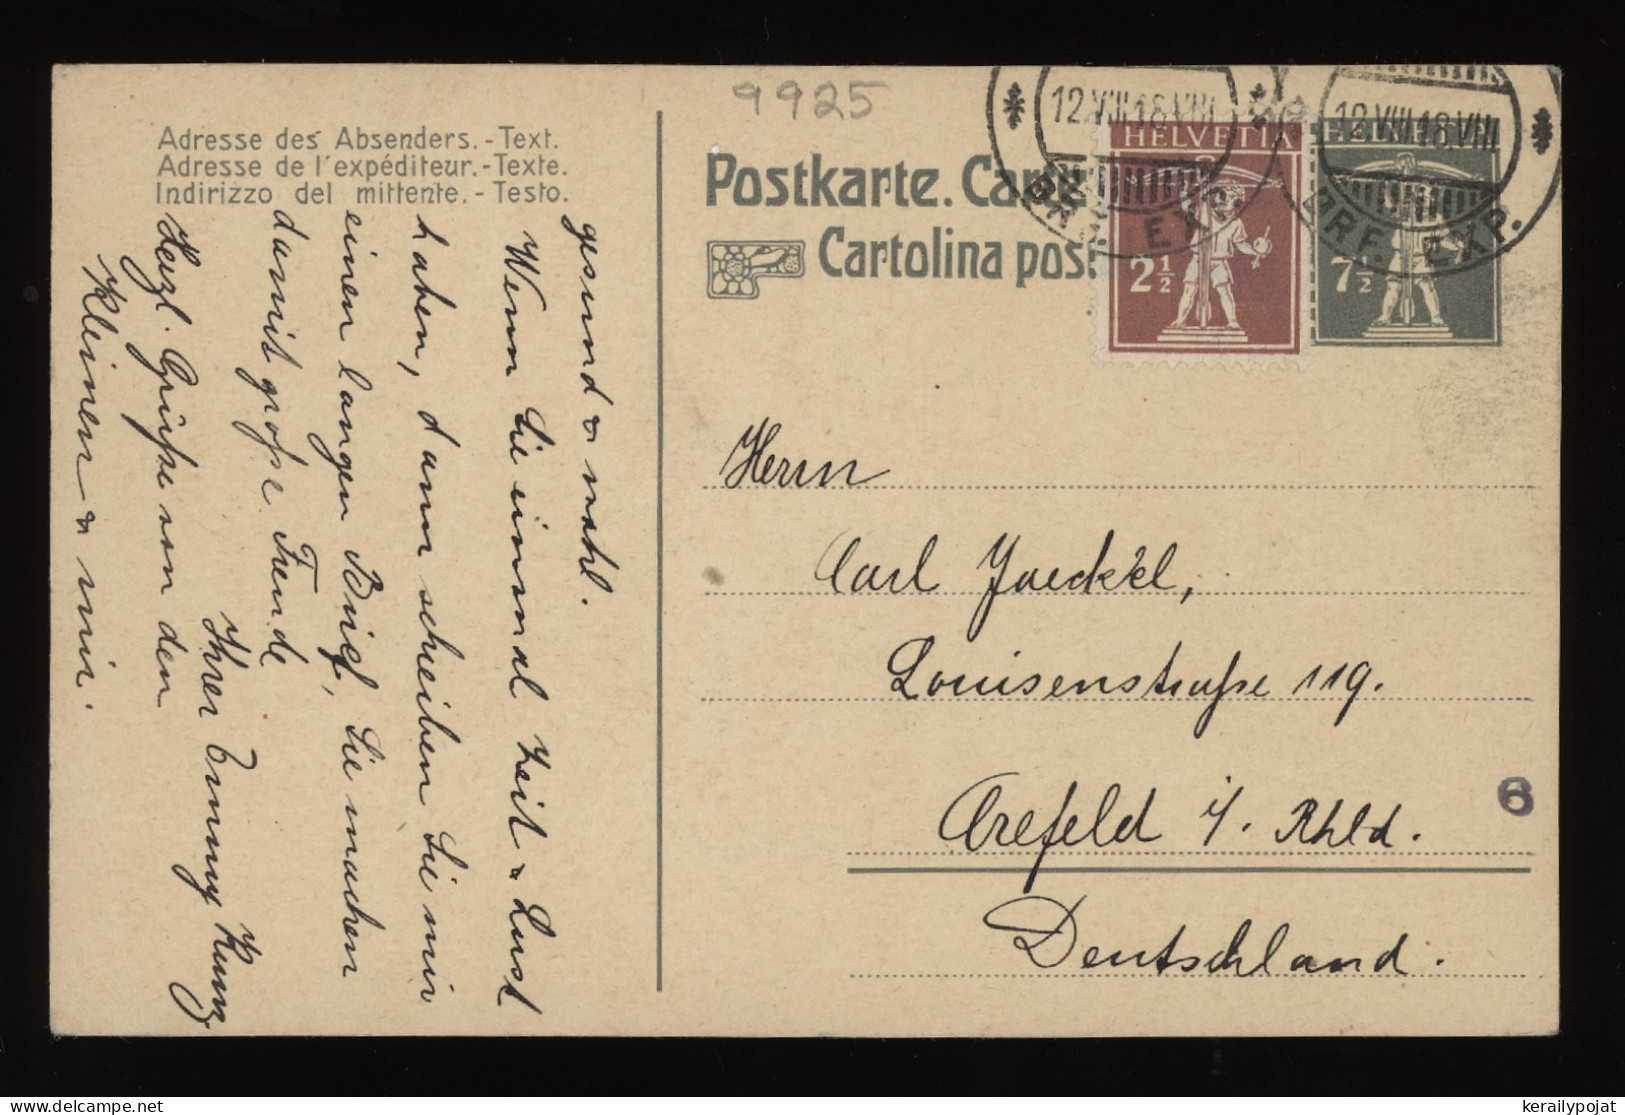 9925
Adresse des Absenders.-Text.
Adresse de l'expéditeur.-Texte.
Indirizzo del mittente.-Testo.
Postkarte. Cart
Cartolina pos
12.VIII.18.VIII
12.VIII.18.VIII
BRF. EXP.
BRF. EXP.
HELVETIA
2½
HELVETIA
7½
gesund & wohl.
Wenn Sie einmal Zeit & Lust
haben, dann schreiben Sie mir
einen langen Brief, Sie machen
damit große Freude
Ihrer Emmy Kunz
Herzl. Grüße von den
Kleinen & mir.
Herrn
Carl Jaeckel,
Louisenstraße 119.
Crefeld i/. Rhld.
Deutschland.
6
www.delcampe.net
kerailypojat